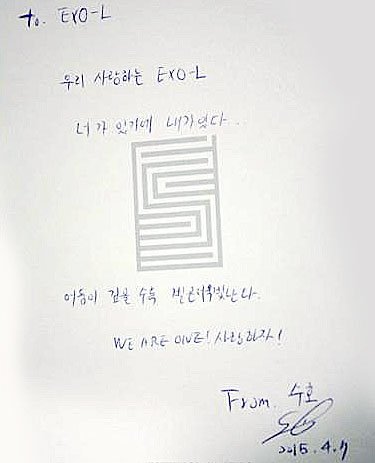 to. EXO-L
우리 사랑하는 EXO-L
너가 있기에 내가있다...
어둠이 깊을 수록 빛은더욱빛난다.
WE ARE ONE! 사랑하자!
From. 수호
2015. 4. 7